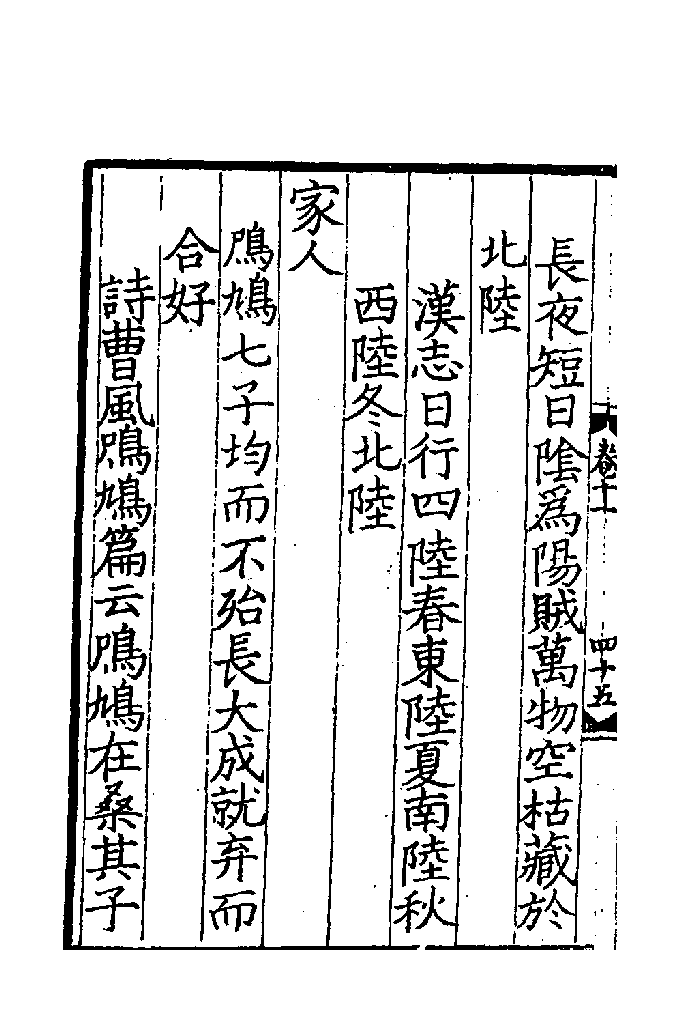 長夜短日陰為陽賊萬物空枯藏於
北陸
漢志日行四陸春東陸夏南陸秋
西陸冬北陸
家人
鳲鳩七子均而不殆長大成就弃而
合好
詩曹風鳲鳩篇云鳲鳩在桑其子
卷十一
四十五